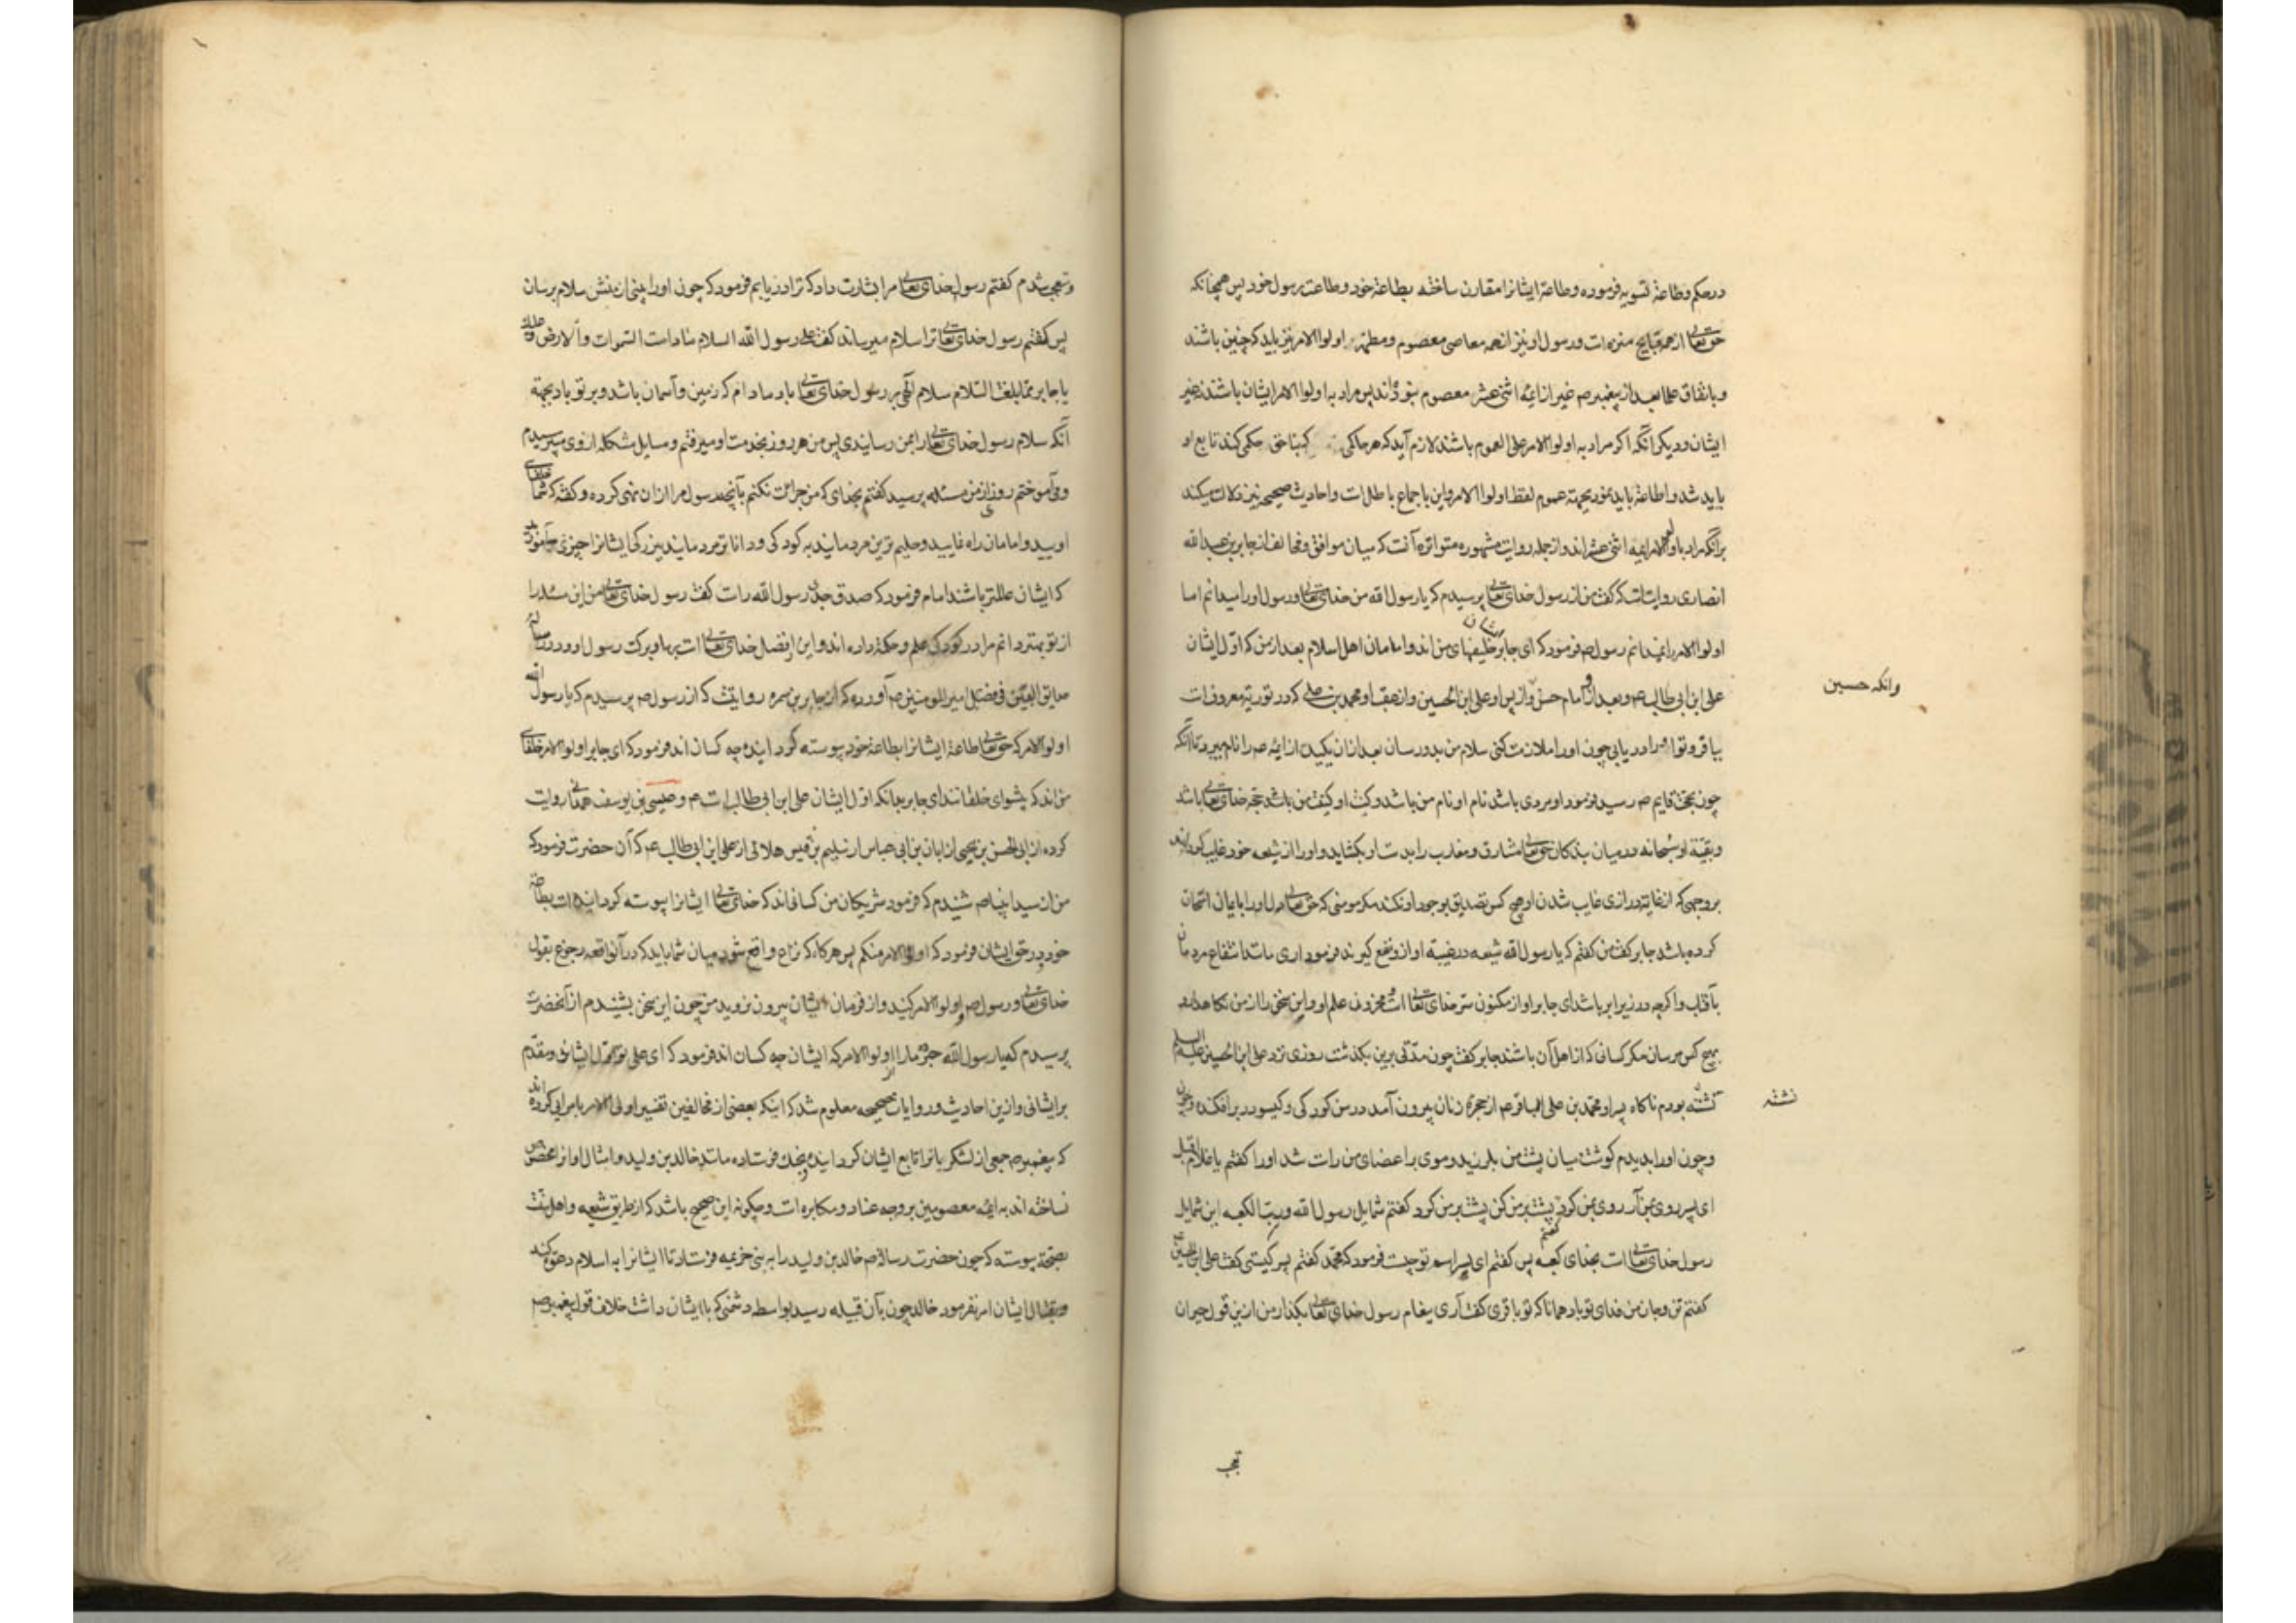 در حکم وطاعة تسویه فرموده وطاعة ایشانرا مقارن ساخته بطاعة خود وطاعت رسول خود پس همچنانکه
حق تعالی از همه قبایح منزه است ورسول او نیز از همه معاصی معصوم ومطهر اولوا الامر نیز باید که چنین باشند
وباتفاق علما بعد از پیغمبر ص غیر از ایمه اثنی عشر معصوم نبوده‌اند پس مراد به اولوا الامر ایشان باشند نه غیر
ایشان ودیگر آنکه اگر مراد به اولوا الامر علی العموم باشند لازم آید که هر حاکمی که بناحق حکمی کند تابع او
باید شد واطاعة باید نمود بجهة عموم لفظ اولوا الامر واین باجماع باطل است واحادیث صحیحه نیز دلالت میکند
بر آنکه مراد باولوا الامر ایمه اثنی عشراند واز جمله روایت مشهوره متواتره آنست که میان موافق ومخالف از جابر بن عبد الله
انصاری روایت است که گفت من از رسول خدای تعالی پرسیدم که یا رسول الله من خدای تعالی ورسول او را میدانم اما
اولوا الامر را نمیدانم رسول ص فرمود که ای جابر ایشان خلیفهای من اند وامامان اهل اسلام بعد از من که اول ایشان
علی ابن ابی طالب ع وبعد از و امام حسن واز پس او علی ابن الحسین واز عقب او محمد بن علی که در توریة معروفست
وانکه حسین
بباقر وتو او را دریابی چون او را ملازمت کنی سلام من بدو رسان بعد از آن یک یک از ایمه ص را نام میبرد تا آنکه
چون بحجة قایم ص رسید فرمود او مردی باشد نام او نام من باشد وکنیت او کنیت من باشد حجة خدای تعالی باشد
وبقیة او سبحانه در میان بندکان حق تعالی مشارق ومغارب را بدست او بکشاید واو را از شیعه خود غایب گرداند
بر وجهی که از غایة درازی غایب شدن او هیچ کس تصدیق بوجود او نکند مکر مومنی که حق تعالی دل او را بایمان امتحان
کرده باشد جابر گفت من گفتم که یا رسول الله شیعه در غیبة او از و نفع کیرند فرمود آری مانند انتفاع مردمان
بآفتاب واکرچه در زیر ابر باشد ای جابر او از مکنون سر خدای تعالی است ومخزون علم او واین سخن را از من نکاه دار و
بهیچ کس مرسان مکر کسانی که از اهل آن باشند جابر گفت چون مدتی برین بکذشت روزی نزد علی ابن الحسین علیه السلام
نشسته بودم ناکاه پسر او محمد بن علی الباقر ع از حجره زنان بیرون آمد در سن کودکی وکیسو در بر افکنده
نشسته
وچون او را بدیدم کوشت میان پشت من بلرزید وموی بر اعضای من راست شد او را گفتم یا غلام اقبل
ای پسر روی بمن آر روی بمن کرد پشت بر من کن پشت بر من کرد گفتم شمایل رسول الله ورب الکعبه این شمایل
رسول خدای تعالی است بخدای کعبه پس گفتم ای پسر اسم تو چیست فرمود که محمد گفتم پسر کیستی گفت علی ابن الحسین
گفتم تن وجان من فدای تو باد همانا که تو باقری گفت آری پیغام رسول خدای تعالی بکذار من ازین قول حیران
تعجب
وتعجب شدم گفتم رسول خدای تعالی مرا بشارت داد که ترا دریابم فرمود که چون او را بینی از منش سلام برسان
پس گفتم رسول خدای تعالی ترا سلام میرساند گفت علی رسول الله السلام مادامت السموات والارض وعلیک
یا جابر بما بلغت السلام سلام الهی بر رسول خدای تعالی باد مادام که زمین وآسمان باشد وبر تو باد بجهة
آنکه سلام رسول خدای تعالی را بمن رسانیدی پس من هر روز بخدمت او میرفتم ومسایل مشکله از وی میپرسیدم
ومی آموختم روزی از من مسئله پرسید گفتم بخدای که من جرات نکنم بآنچه رسول مرا از آن نهی کرده وکفته که شما
اویید وامامان راه نمایید وحلیم ترین مردمانید به کودکی وداناتر مردمانید ببزرکی ایشانرا چیزی میاموزید
که ایشان عالمتر باشند امام فرمود که صدق جدی رسول الله راست گفت رسول خدای تعالی من این مسئله را
از تو بهتر دانم مرا در کودکی علم وحکمة داده اند واین از فضل خدای تعالی است بر ما وبرکت رسول او ودر رسالۀ
حدایق الیقین فی فضایل امیر المومنین ص آورده که از جابر بن سمره روایتست که از رسول ص پرسیدم که یا رسول الله
اولوا الامر که حق تعالی طاعة ایشانرا بطاعة خود پیوسته کردانیده چه کسان اند فرمود که ای جابر اولوا الامر خلفای
من اند که پیشوای خلقانند ای جابر بدانکه اول ایشان علی ابن ابی طالب است ع وعیسی بن یوسف همدانی روایت
کرده از ابی الحسن بن یحیی از ابان بن ابی عیاش از سلیم بن قیس هلالی از علی ابن ابی طالب ع که آن حضرت فرمود که
من از سید انبیا ص شنیدم که فرمود شریکان من کسانی‌اند که خدای تعالی ایشانرا پیوسته کردانیده است بطاعة
خود ودر حق ایشان فرمود که اولوا الامر منکم پس هرکاه که نزاع واقع شود میان شما باید که در آن واقعه رجوع بقول
خدای تعالی ورسول ص واولوا الامر کنید واز فرمان ایشان بیرون نروید من چون این سخن بشنیدم از آنحضرت
پرسیدم که یا رسول الله خبر ده مارا از اولوا الامر که ایشان چه کسان اند فرمود که ای علی تو اول ایشانی ومقدم
بر ایشانی وازین احادیث وروایات صحیحه معلوم شد که اینکه بعضی از مخالفین تفسیر اولی الامر باسرای کرده اند
که پیغمبر ص جمعی از لشکریانرا تابع ایشان کردانیده بجنک فرستاده مانند خالد بن ولید وامثال او را مخصوص
نساخته اند به ایمه معصومین بر وجه عناد ومکابره است وچکونه این صحیح باشد که از طریق شیعه واهل سنت
بصحة پیوسته که چون حضرت رسالة ص خالد بن ولید را به بنی خزیمه فرستاد تا ایشانرا به اسلام دعوة کند
وبقتال ایشان امر نفرمود خالد چون بآن قبیله رسید بواسطه دشمنی که با ایشان داشت خلاف قول پیغمبر ص